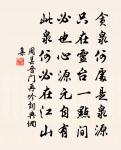 貪泉何處是泉源
只在靈台一點間
必也心源元自有
此泉何必在江山
周昙晉門再吟詞典網
集